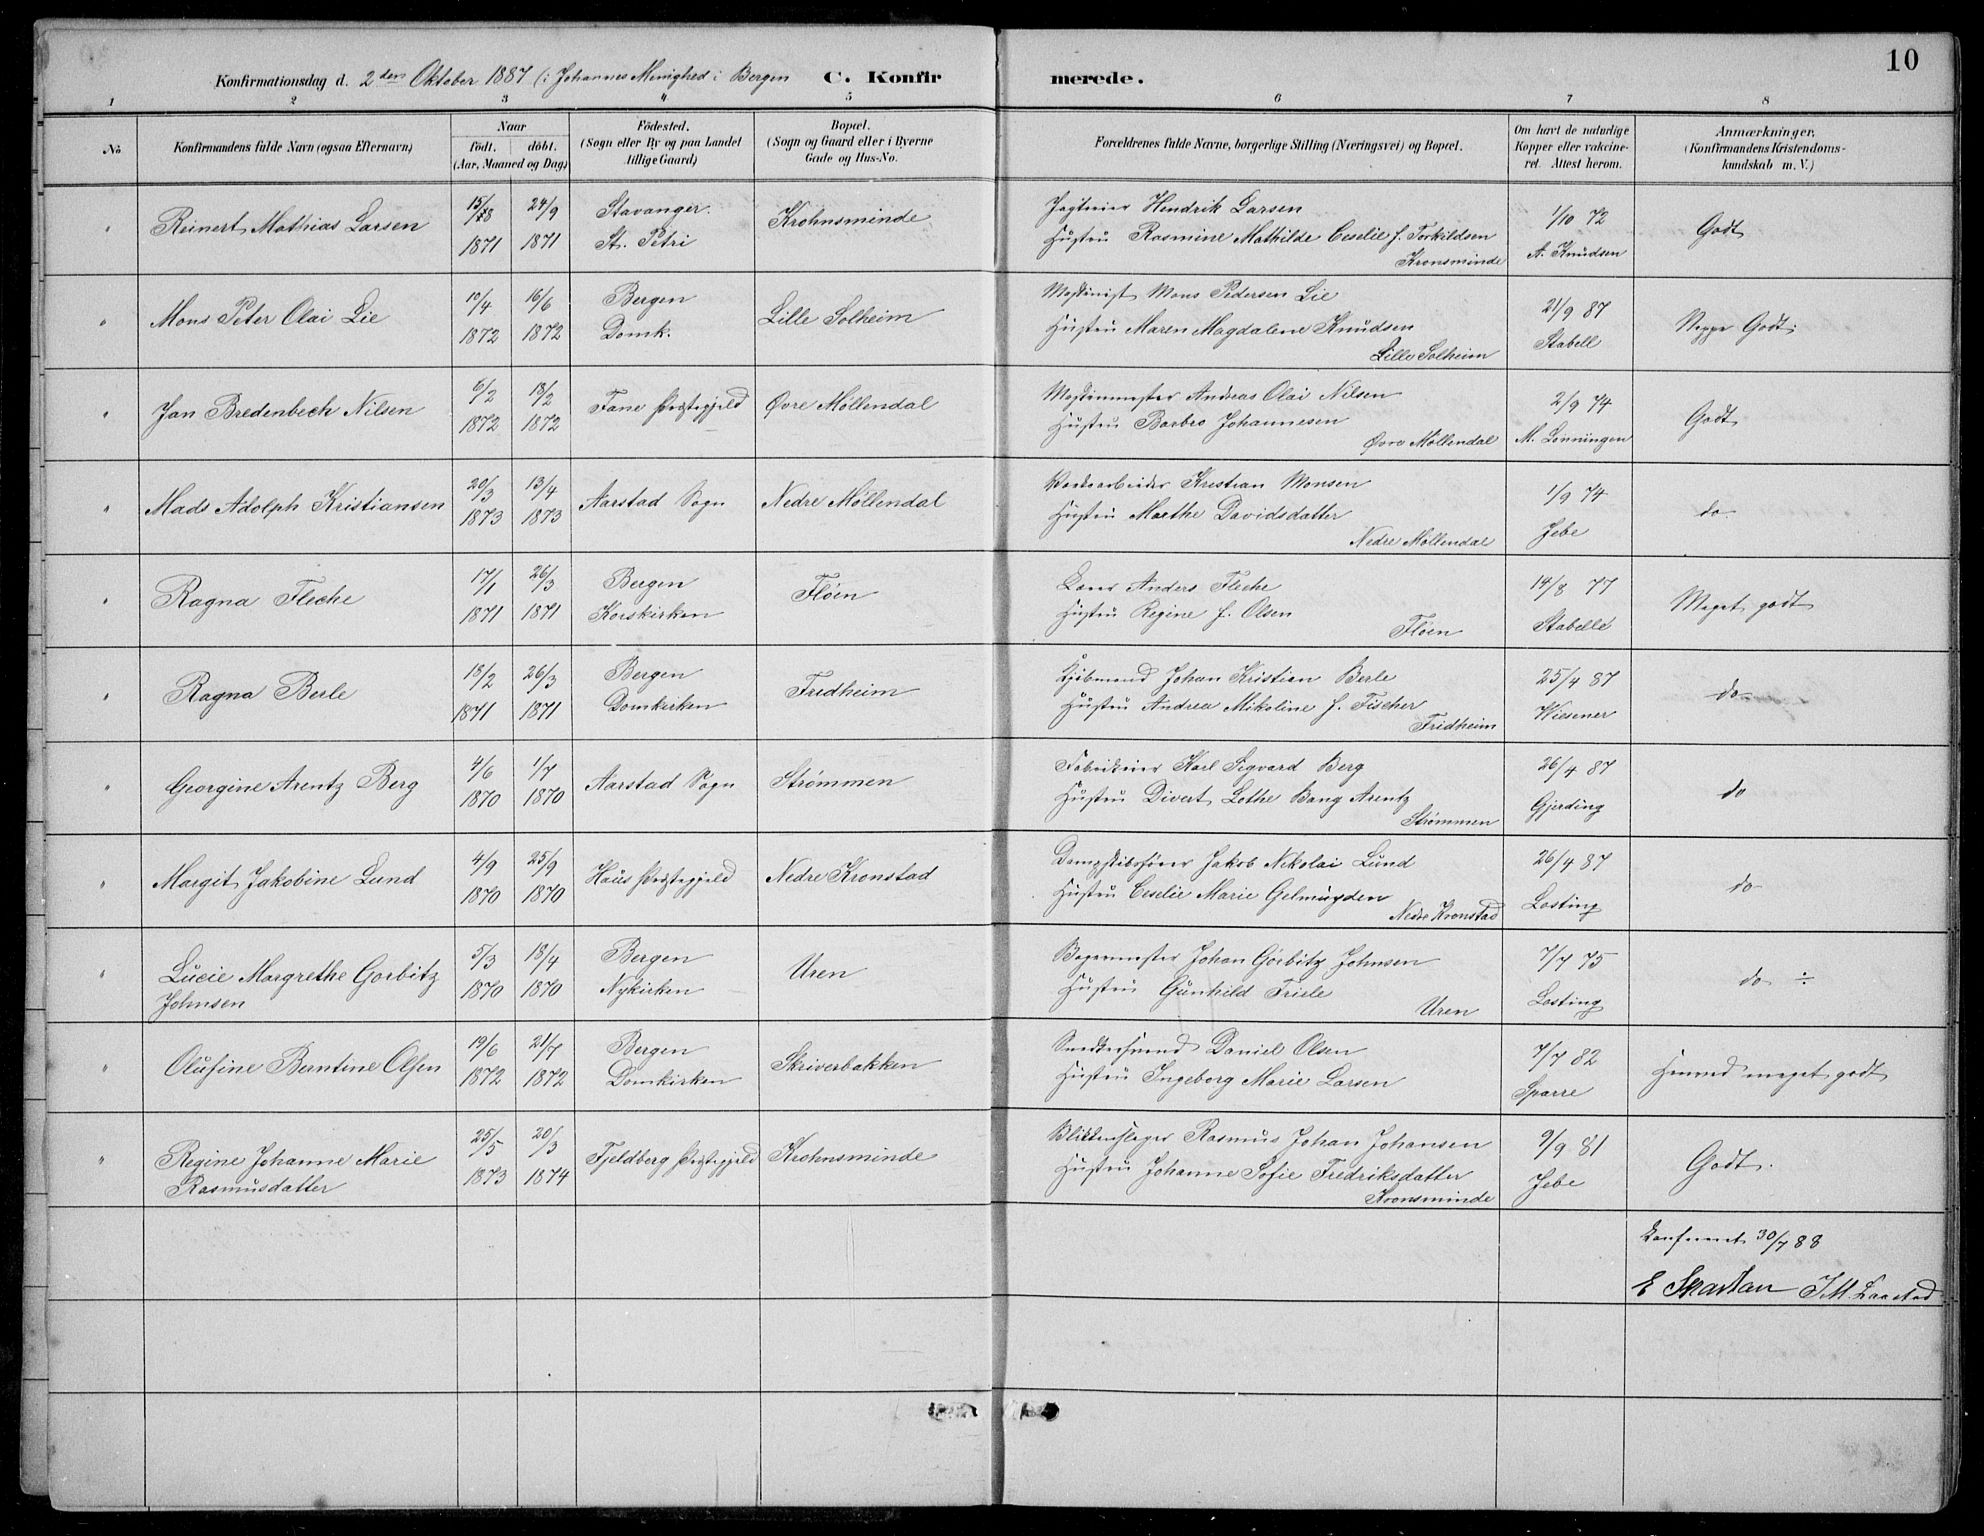 10
Konfirmationsdag d. 2den Oktober 1887 (i Johannes Menighed i Bergen C. Konfirmerede.
1 2 3 4 5 6 7 8
No
Konfirmandens fulde Navn (ogsaa Efternavn)
Naar
födt. döbt.
(Aar, Maaned og Dag)
Födested.
(Sogn eller By og paa Landet
tillige Gaard)
Bopæl.
(Sogn og Gaard eller i Byerne
Gade og Hus-No.
Forældrenes fulde Navne, borgerlige Stilling (Næringsvei) og Bopæl.
Om havt de naturlige
Kopper eller vakcine-
ret. Attest herom.
Anmærkninger,
(Konfirmandens Kristendoms-
kundskab m. V.)
" Reinert Mathias Larsen
15/8 1871
24/9 1871
Stavanger.
St. Petri
Krohnsminde
Jagteier Hendrik Larsen
Hustru Rasmine Mathilde Ceselie f. Torkildsen
Kronsminde
1/10 72
A. Knudsen
Godt
" Mons Peter Olai Lie
10/4 1872
16/6 1872
Bergen
Domk.
Lille Solheim
Maskinist Mons Pedersen Lie
Hustru Maren Magdalene Knudsen
Lille Solheim
21/9 87
Stabell
Neppe Godt.
" Jan Bredenbech Nilsen
6/2 1872
18/2 1872
Fane Præstegjeld
Øvre Møllendal
Maskinmester Andreas Olai Nilsen
Hustru Barbro Johannesen
Øvre Møllendal
2/9 74
M. Linningen
Godt
" Mads Adolph Kristiansen
20/3 1873
13/4 1873
Aarstad Sogn
Nedre Møllendal
Kristian Monsen
Hustru Marthe Davidsdatter
Nedre Møllendal
1/9 74
Jebe
do
" Ragna Fleche
17/1 1871
26/3 1871
Bergen
Korskirken
Fløen
Anders Fleche
Hustru Regine f. Olsen
Fløen
14/8 77
Stabell
Meget godt
" Ragna Berle
18/2 1871
26/3 1871
Bergen
Domkirken
Fridheim
Kjøbmand Johan Kristian Berle
Hustru Andrea Mikoline f. Fischer
Fridheim
25/4 87
Wiesener
do
" Georgine Arentz Berg
4/6 1870
1/7 1870
Aarstad Sogn
Strømmen
Fabrikeier Karl Sigvard Berg
Hustru Divert Lothe Bang Arentz
Strømmen
26/4 87
Gjerding
do
" Margit Jakobine Lund
4/9 1870
25/9 1870
Haus Præstegjeld
Nedre Kronstad
Dampskibsfører Jakob Nikolai Lund
Hustru Ceselie Marie Gelmuyden
Nedre Kronstad
26/4 87
Losting
do
" Lucie Margrethe Gorbitz
Johnsen
5/3 1870
18/4 1870
Bergen
Nykirken
Uren
Bagermester Johan Görbitz Johnsen
Hustru Gunhild Friele
Uren
7/7 75
Losting
do ÷
" Olufine Berntine Olsen
19/6 1872
21/7 1872
Bergen
Domkirken
Skriverbakken
Snedkersvend Daniel Olsen
Hustru Ingeborg Marie Larsen
7/7 82
Sparre
Henved meget godt
" Regine Johanne Marie
Rasmusdatter
25/5 1873
20/3 1874
Fjeldberg Præstegjeld
Krohnsminde
Blikkenslager Rasmus Johan Johansen
Hustru Johanne Sofie Fredriksdatter
Kronsminde
9/9 81
Jebe
Godt.
Konfereret 30/7 88